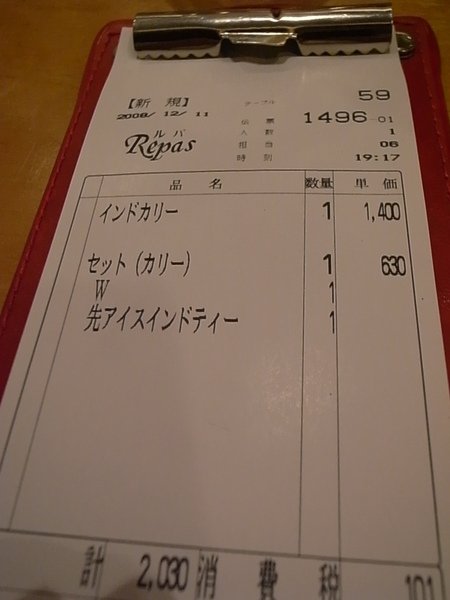 【新規】 テーブル 59
2008/12/11 伝票 1496-01
ルパ 人数 1
Repas 担当 06
時刻 19:17
品名 数量 単価
インドカリー 1 1,400
セット(カリー) 1 630
W 1
先アイスインドティー 1
計 2,030 消費税 101